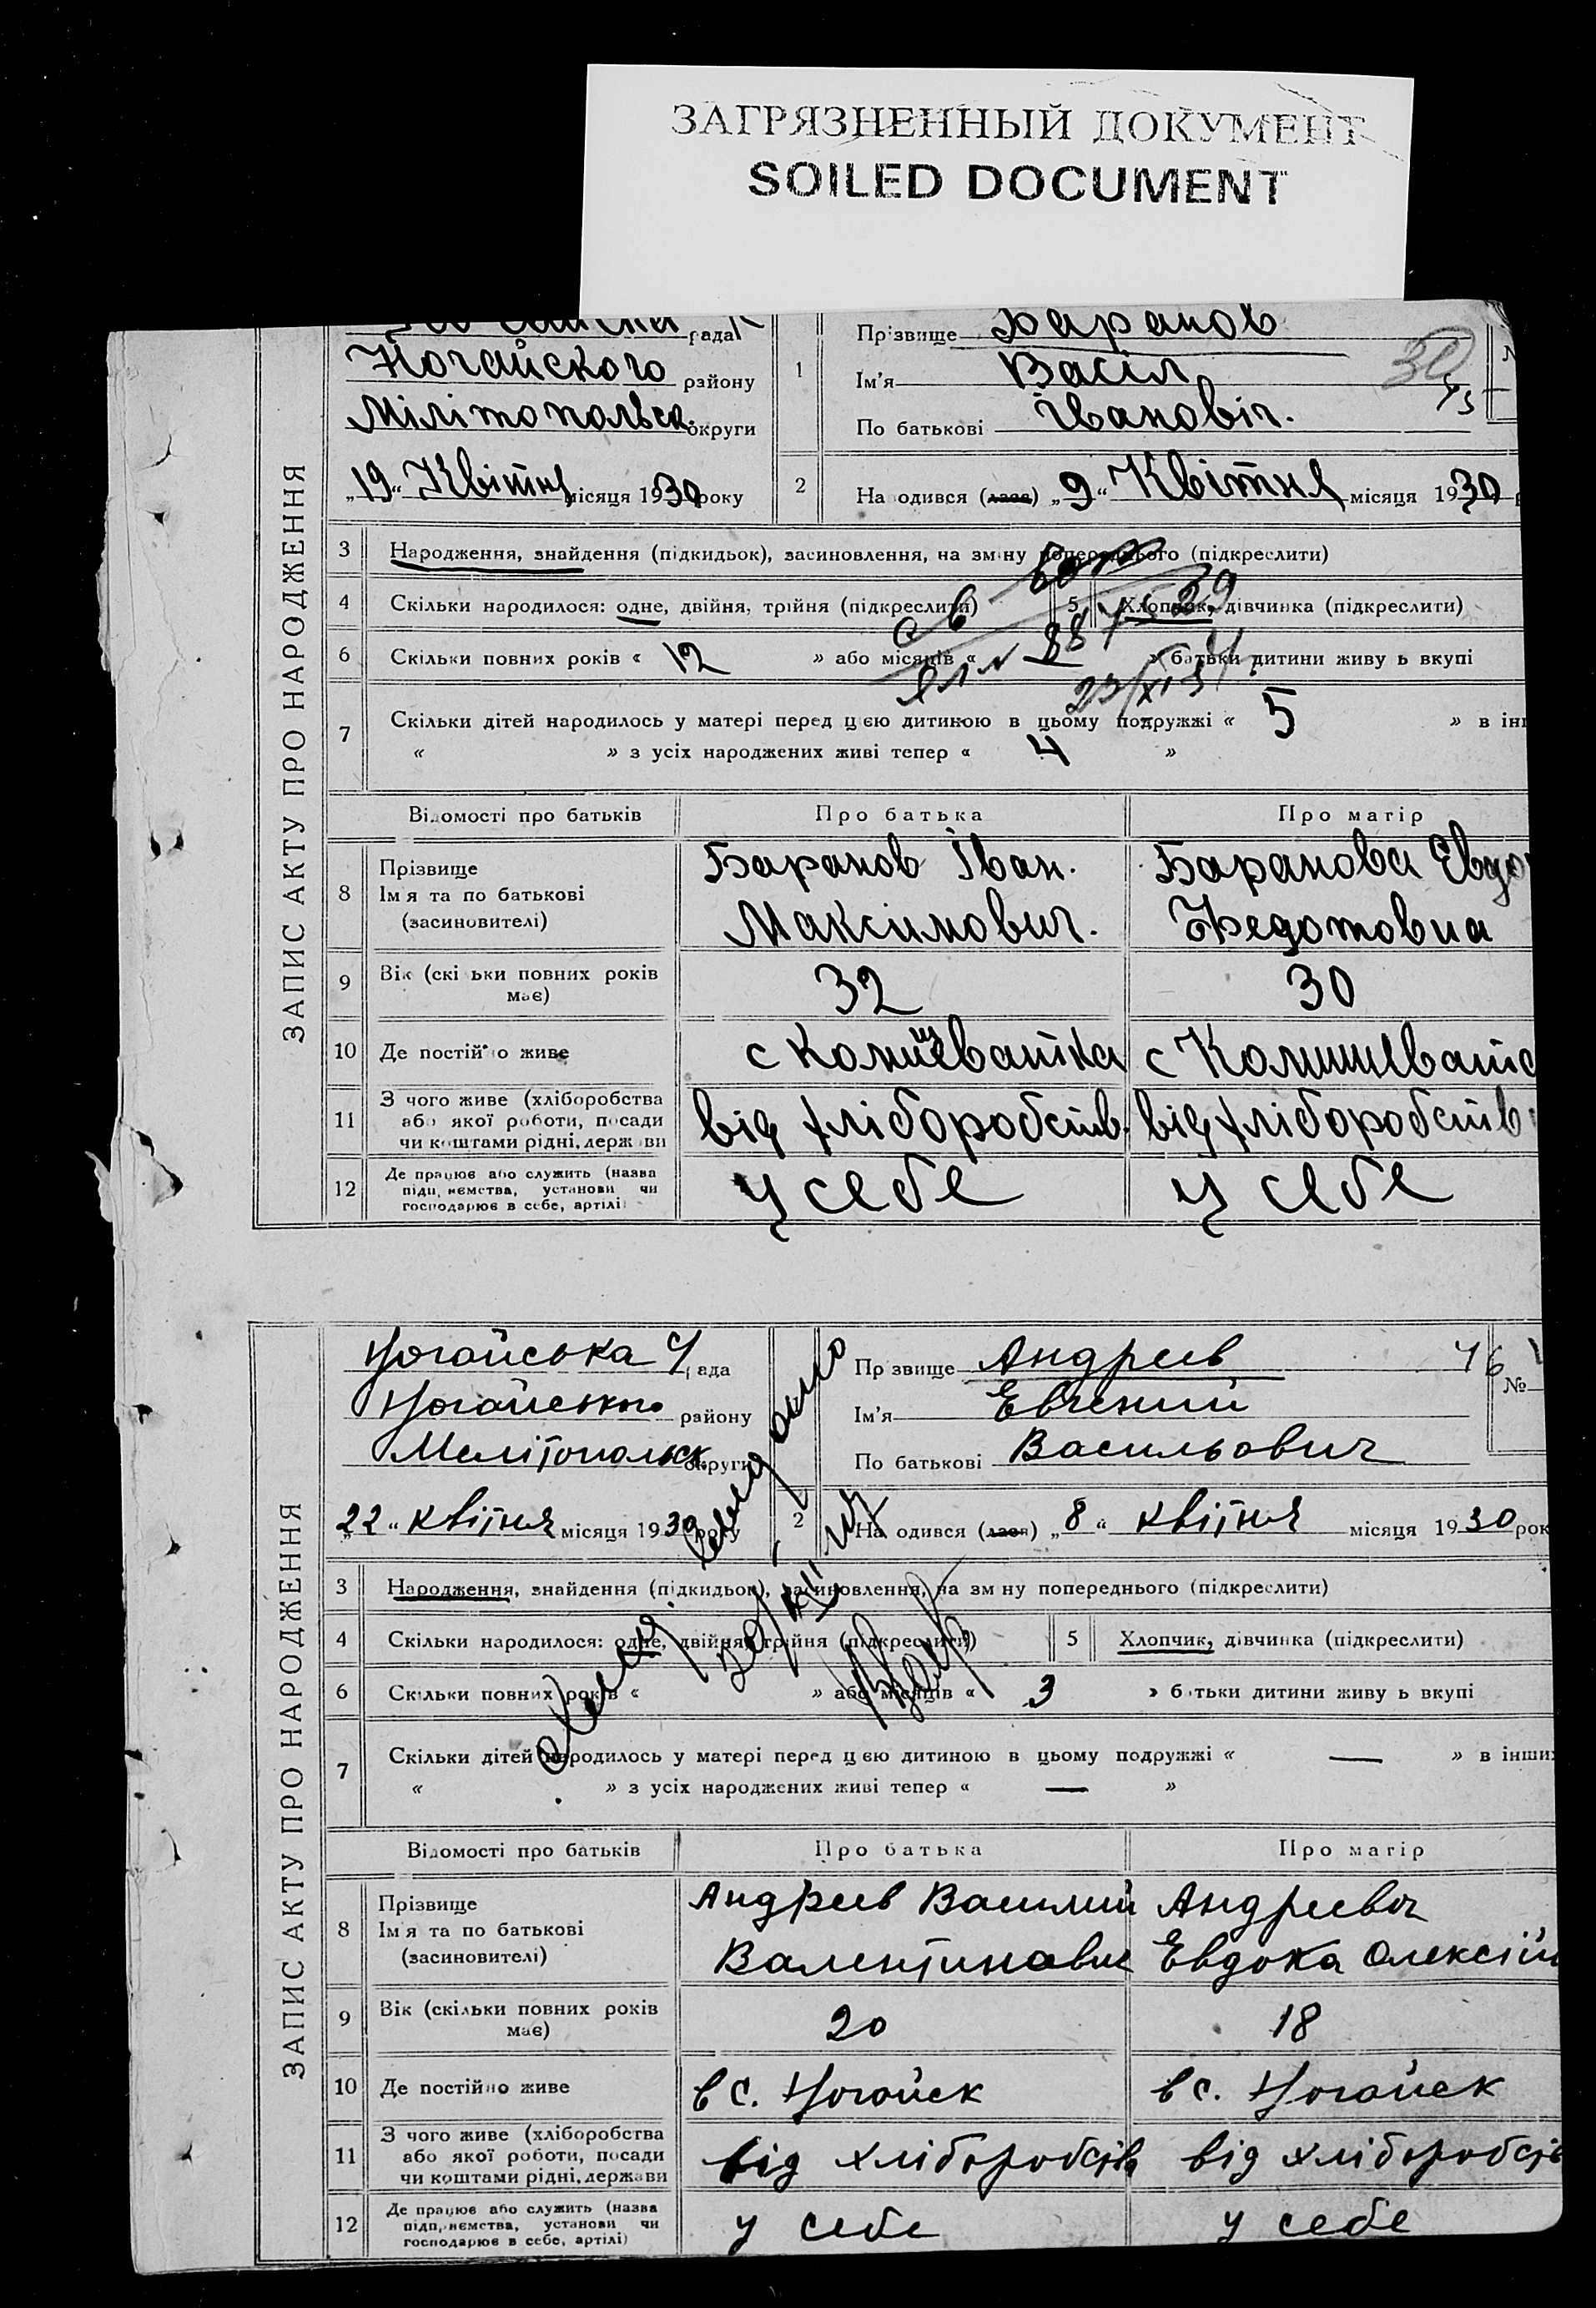 ЗАГРЯЗНЕННЫЙ ДОКУМЕНТ
SOILED DOCUMENT
ЗАПИС АКТУ ПРО НАРОДЖЕННЯ
рада
Ногайского району
Мілітопольск. округи
„19“ Квітня місяця 1930 року
1
Прізвище Баранов
Ім'я Васіл
По батькові Івановіч.
30
45
2
Народився (лася) „9“ Квітня місяця 1930
3 Народження, знайдення (підкидьок), засиновлення, на зміну попереднього (підкреслити)
4 Скільки народилося: одне, двійня, трійня (підкреслити) 5 Хлопчик, дівчинка (підкреслити)
6 Скільки повних років « 12 » або місяців « » батьки дитини живуть вкупі
7 Скільки дітей народилось у матері перед цією дитиною в цьому подружжі « 5 » в ін
« » з усіх народжених живі тепер « 4 »
Відомості про батьків Про батька Про матір
8 Прізвище Ім'я та по батькові (засиновителі)
Баранов Іван. Максимович.
Баранова Евдо
Федотовна
9 Вік (скільки повних років має) 32 30
10 Де постійно живе с Комишеватка с Комишеватс
11 З чого живе (хліборобства або якої роботи, посади чи коштами рідні, держави від хліборобств. від хліборобств
12 Де працює або служить (назва підприємства, установи чи господарює в себе, артілі) у себе у себе
ЗАПИС АКТУ ПРО НАРОДЖЕННЯ
Ногайська рада
Ногайського району
Мелітопольск. округи
„22“ квітня місяця 1930 року
Прізвище Андреев
Ім'я Евгений
По батькові Васильович
46
№
2
Народився (лася) „8“ квітня місяця 1930 рок
3 Народження, знайдення (підкидьок), засиновлення, на зміну попереднього (підкреслити)
4 Скільки народилося: одне, двійня, трійня (підкреслити) 5 Хлопчик, дівчинка (підкреслити)
6 Скільки повних років « » або місяців « 3 » батьки дитини живуть вкупі
7 Скільки дітей народилось у матері перед цією дитиною в цьому подружжі « — » в інши
« » з усіх народжених живі тепер « — »
Відомості про батьків Про батька Про матір
8 Прізвище Ім'я та по батькові (засиновителі)
Андреев Василий
Валентинович
Андреева
Евдока Олексій
9 Вік (скільки повних років має) 20 18
10 Де постійно живе в с. Ногайск в с. Ногайск
11 З чого живе (хліборобства або якої роботи, посади чи коштами рідні, держави від хліборобств від хліборобств
12 Де працює або служить (назва підприємства, установи чи господарює в себе, артілі) у себе у себе